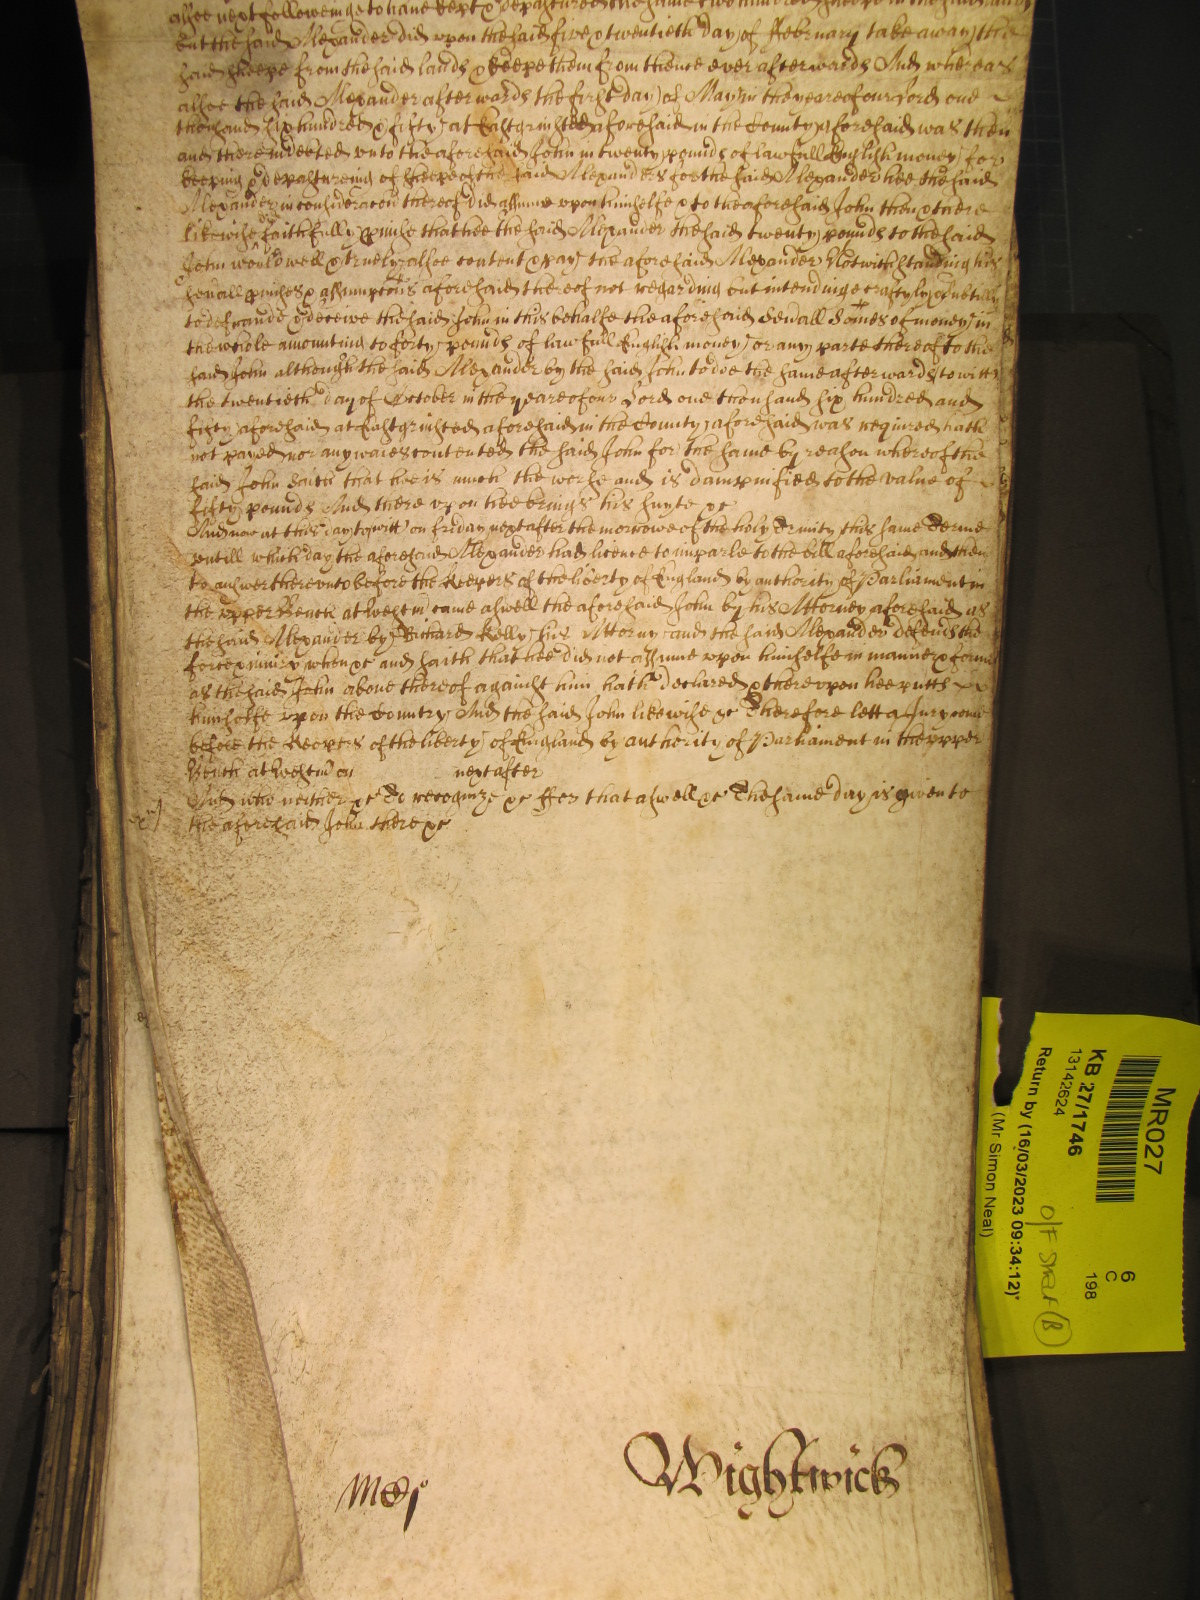 alsoe next followeinge to have kept & depastured the same two hundred sheepe in the said
but the said Alexander did upon the said five & twentieth day of ffebruary take away the
said sheepe from the said lands & keepe them from thence ever afterwards And whereas
alsoe the said Alexander afterwards the first day of May in the yeare of our Lord one
thousand six hundred & fifty at Eastgrinsted aforesaid in the County aforesaid was then
and there indebted unto the aforesaid John in twenty pounds of lawfull English money for
keeping & depastureing of sheepe of the said Alexanders for the said Alexander hee the said
Alexander in consideracon thereof did assume upon himselfe & to the aforesaid John then & there
likewise faithfully pmise that hee the said Alexander the said twenty pounds to the said
John would well & truely alsoe content & pay the aforesaid Alexander Notwithstanding his
severall pmises & assumptons aforesaid thereof not regarding but intending craftyly & subtilly
to defraude & deceive the said John in this behalfe the aforesaid sevall somes of money in
the whole amounting to forty pounds of lawfull English money or any parte thereof to the
said John although the said Alexander by the said John to doe the same afterwards to witt
the twentieth day of October in the yeare of our Lord one thousand six hundred and
fifty aforesaid at Eastgrinsted aforesaid in the County aforesaid was required hath
not payed nor any waies contented the said John for the same by reason whereof the
said John saith that hee is much the worse and is dampnified to the value of
fifty pounds And thereupon hee brings his suyte &c
And now at this day to witt on Friday next after the morrowe of the holy Trinity this same Terme
untill which day the aforesaid Alexander had licence to imparle to the bill aforesaid and then
to answer thereunto before the Keepers of the liberty of England by authority of Parliament in
the upper Bench at Westm came aswell the aforesaid John by his Attorney aforesaid as
the said Alexander by Richard Kelly his Attorny and the said Alexander defends the
force & iniury when &c and saith that hee did not assume upon himselfe in manner & forme
as the said John above thereof against him hath declared & thereupon hee putts
himselfe upon the Country And the said John likewise &c Therefore lett a Jury come
before the Keepers of the liberty of England by authority of Parliament in the upper
Bench at Westm on next after
And who neither &c To recognize &c ffor that aswell &c The same day is given to
the aforesaid John there &c
Wightwick
MR027
KB 27/1746
13142624
Return by (16/03/2023 09:34:12)*
(Mr Simon Neal)
6
C
198
O/F SHELF (B)